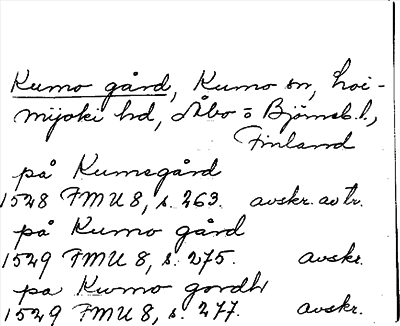 Kumo gård, Kumo sn, Loi-
mijoki hd, Åbo o Björneb. l.,
Finland
på Kumogård
1528 FMU 8, s. 263. avskr. av tr.
på Kumo gård
1529 FMU 8, s. 275. avskr.
pa Kwmo gordh
1529 FMU 8, s. 277. avskr.